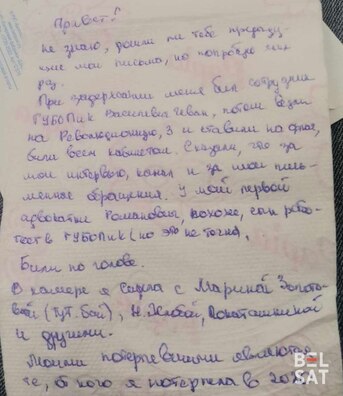 Привет!
не знаю, дошли ли тебе предыду
щие мои письма, но попробую ещё
раз.
При задержании меня бил сотрудник
ГУБОПиК потом везли
на Революционную, 3 и ставили на
били всем кабинетом. Сказали, что за
мои интервью, канал и за мои пись-
менные обращения. У моей первой
адвокатки Романович, похоже, сын рабо-
тает в ГУБОПиК (но это не точно).
Били по голове.
В камере я сидела с Мариной Золото-
вой (тут.бай), 
и другими.
Моими потерпевшими являются
те, от кого я потерпела в 202
BEL
SAT